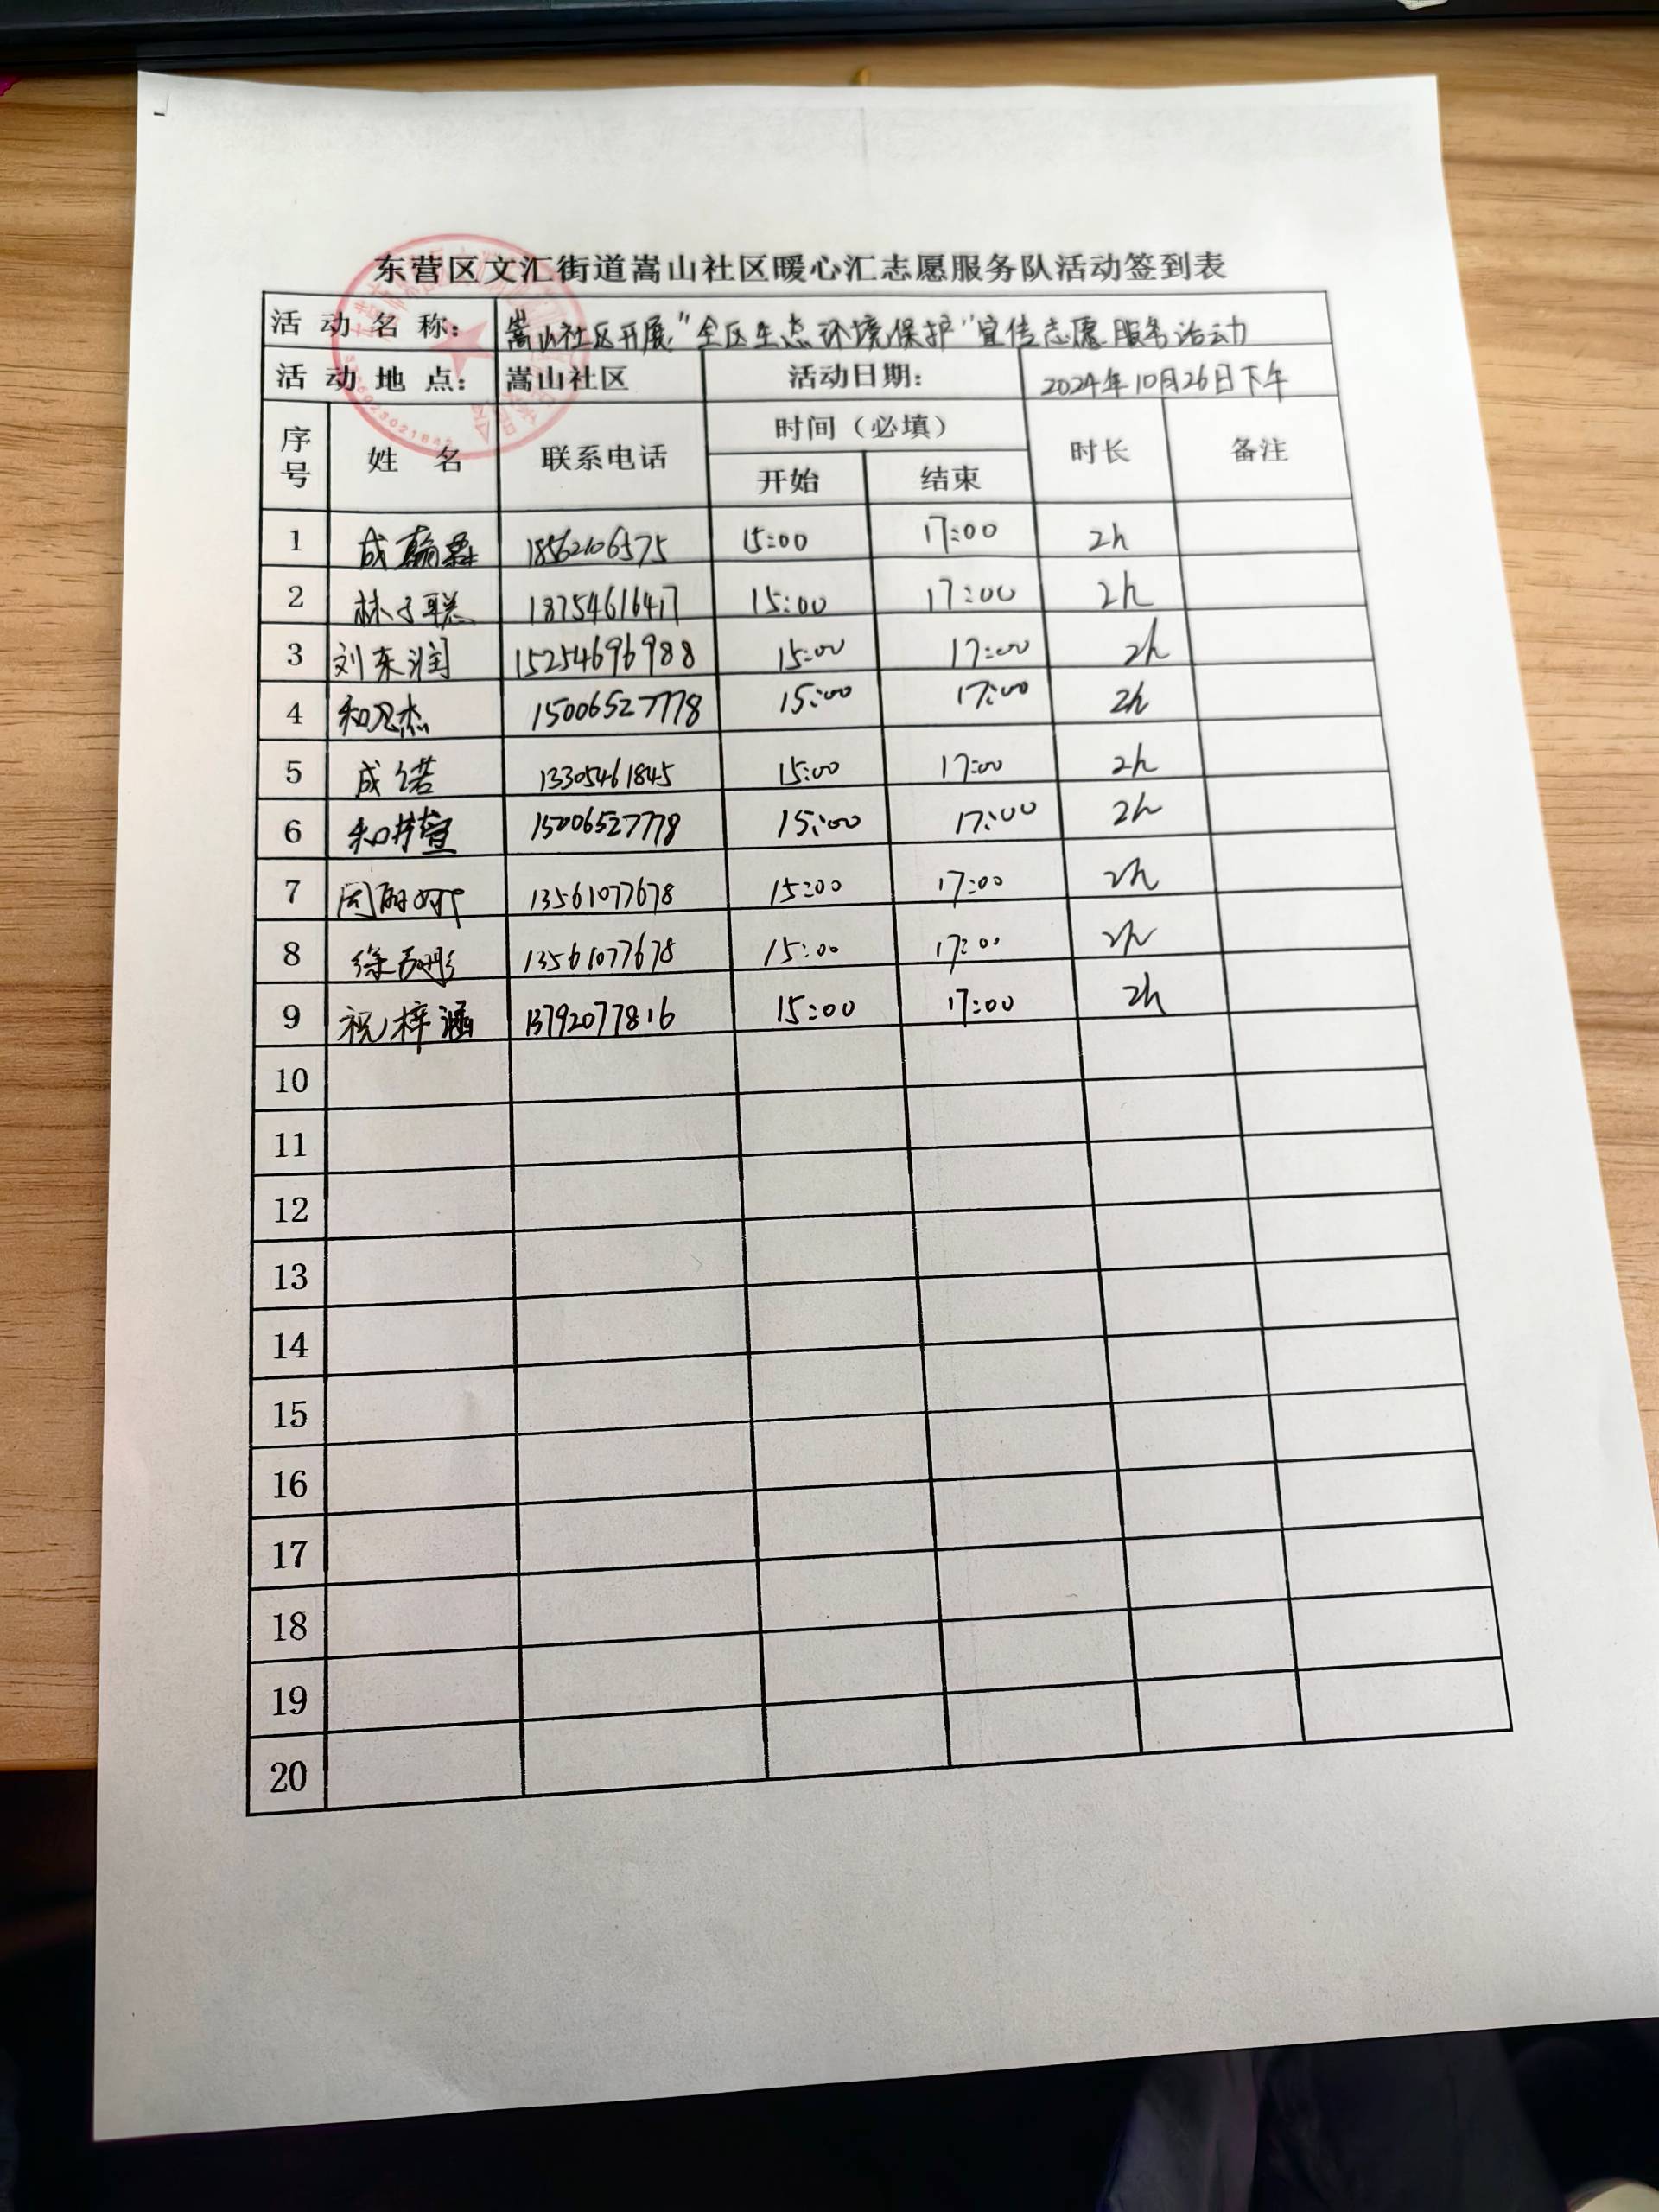 东营区文汇街道嵩山社区暖心汇志愿服务队活动签到表
活动名称： 嵩山社区开展“全区生态环境保护”宣传志愿服务活动
活动地点： 嵩山社区 活动日期： 2024年10月26日下午
序号 姓名 联系电话 时间（必填） 时长 备注
开始 结束
1 成 18562106575 15:00 17:00 2h
2 林子聪 18754616417 15:00 17:00 2h
3 刘东润 15254696988 15:00 17:00 2h
4 和思杰 15006527778 15:00 17:00 2h
5 成诺 13305461845 15:00 17:00 2h
6 和梓萱 15006527778 15:00 17:00 2h
7 周丽 13561077678 15:00 17:00 2h
8 徐 13561077678 15:00 17:00 2h
9 祝梓涵 13792077816 15:00 17:00 2h
10
11
12
13
14
15
16
17
18
19
20